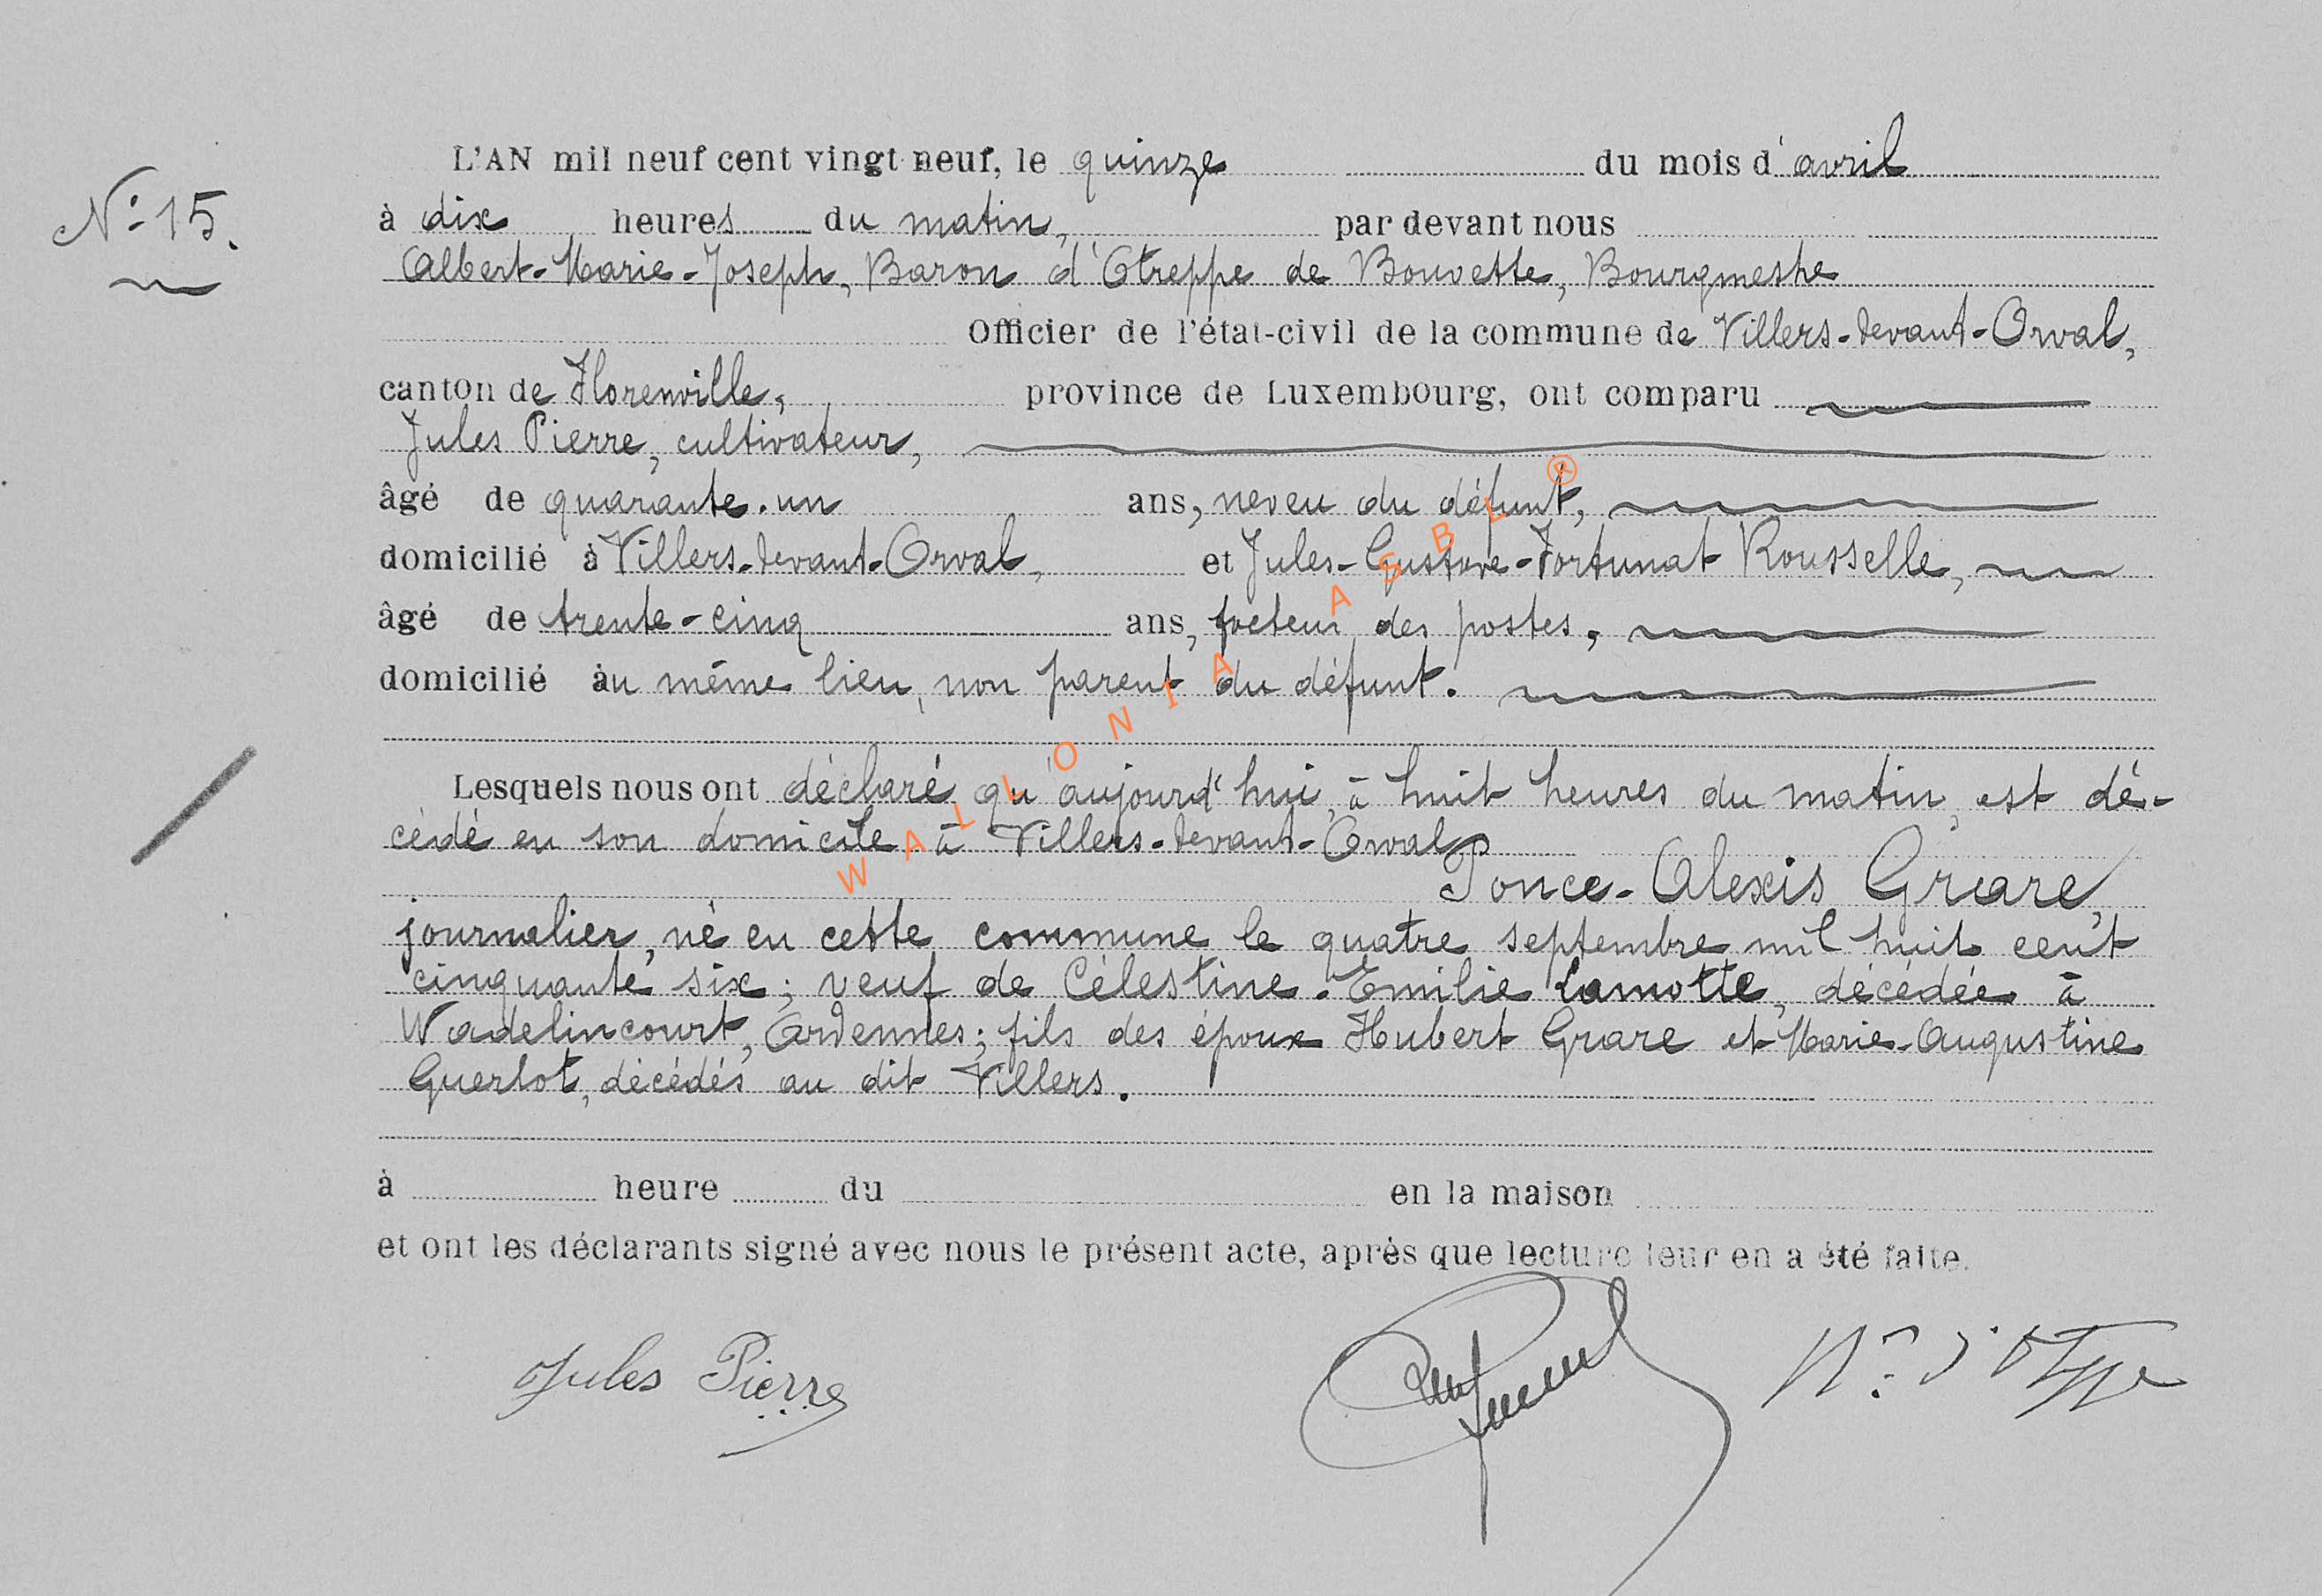 N° 15.
L'AN mil neuf cent vingt neuf, le quinze du mois d'avril
à dix heures du matin, par devant nous
Albert-Marie-Joseph, Baron d'Otreppe de Bouvette, Bourgmestre
Officier de l'état-civil de la commune de Villers-devant-Orval,
canton de Florenville, province de Luxembourg, ont comparu
Jules Pierre, cultivateur,
âgé de quarante-un ans, neveu du défunt,
domicilié à Villers-devant-Orval, et Jules-Gustave-Fortunat Rousselle,
âgé de trente-cinq ans, facteur des postes,
domicilié au même lieu, non parent du défunt.
Lesquels nous ont déclaré qu'aujourd'hui, à huit heures du matin, est dé-
cédé en son domicile à Villers-devant-Orval
Ponce-Alexis Grare,
journalier, né en cette commune le quatre septembre mil huit cent
cinquante six; veuf de Célestine-Emilie Lamotte, décédée à
Wadelincourt, Ardennes; fils des époux Hubert Grare et Marie-Augustine
Guerlot, décédés au dit Villers.
à heure du en la maison
et ont les déclarants signé avec nous le présent acte, après que lecture leur en a été faite.
Jules Pierre
WALLONIA ASBL ®